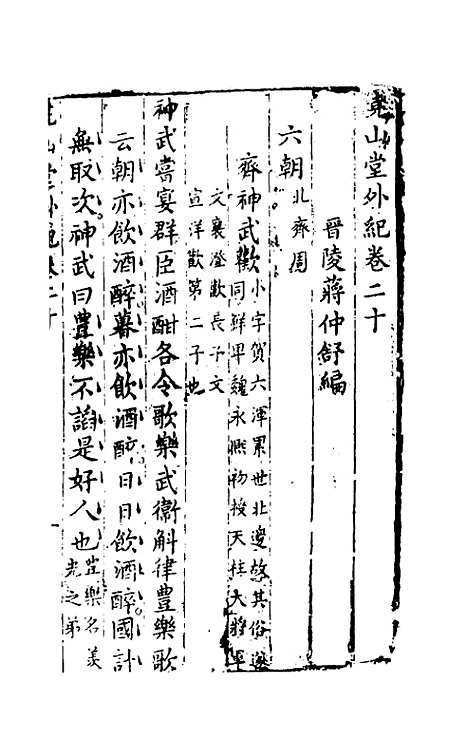 堯山堂外紀卷二十
晉陵蔣仲舒編
六朝北齊周
齊神武歡小字賀六渾累世北邊故其俗遂
同鮮卑魏永熙初授天柱大將軍
文襄澄歡長子文
宣洋歡第二子也
神武嘗宴群臣酒酣各令歌樂武衞斛律豊樂歌
云朝亦飲酒醉暮亦飲酒醉日日飲酒醉國計
無取次神武曰豊樂不諂是好人也豊樂名羨
光之弟
堯山堂外紀卷二十
一